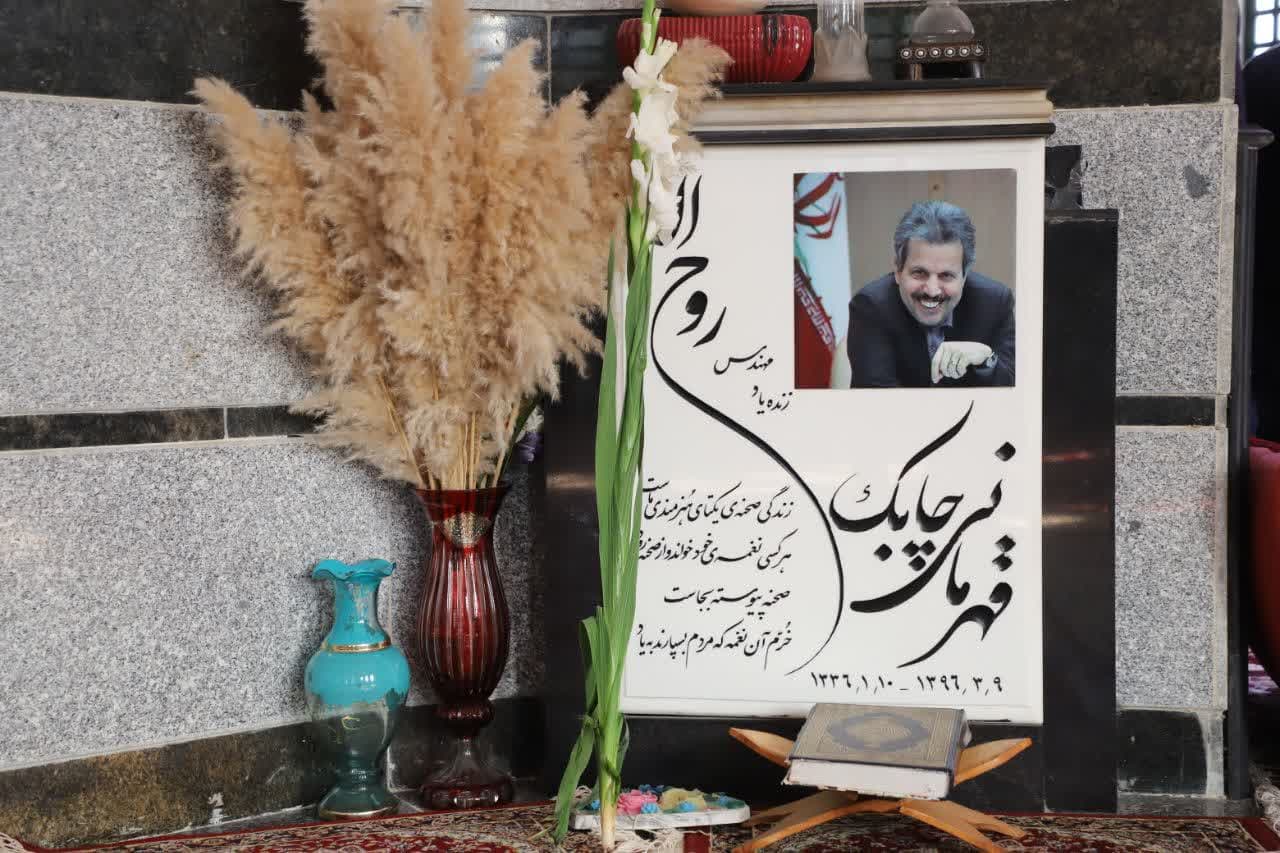 زنده یاد
مهندس
روح الله
قهرمانی چابک
زندگی صحنه‌ی یکتای هُنرمندی ماست
هر کسی نغمه‌ی خود خواند و از صحنه رود
صحنه پیوسته بجاست
خُرّم آن نغمه که مردم بسپارند به یاد
۱۳۳۶٫۱٫۱۰ - ۱۳۹۶٫۳٫۹